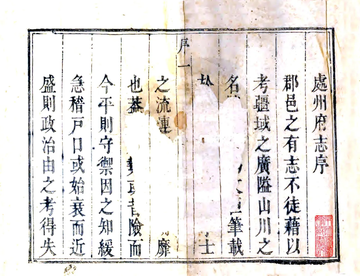 處州府志序
郡邑之有志不徒藉以
考疆域之廣隘山川之
名 筆載
士
之流連 靡
也蓋 勢或昔險而
今平則守禦因之知緩
急稽戶口或始衰而近
盛則政治由之考得失
序 一